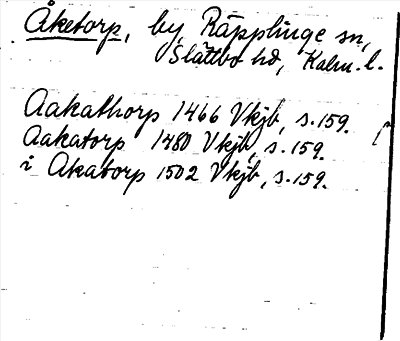 Åketorp, by, Räpplinge sn,
Slättbo hd, Kalm. l.
Aakathorp 1466 Vkjb, s. 159.
Aakatorp 1480 Vkjb, s. 159.
i Akatorp 1502 Vkjb, s. 159.